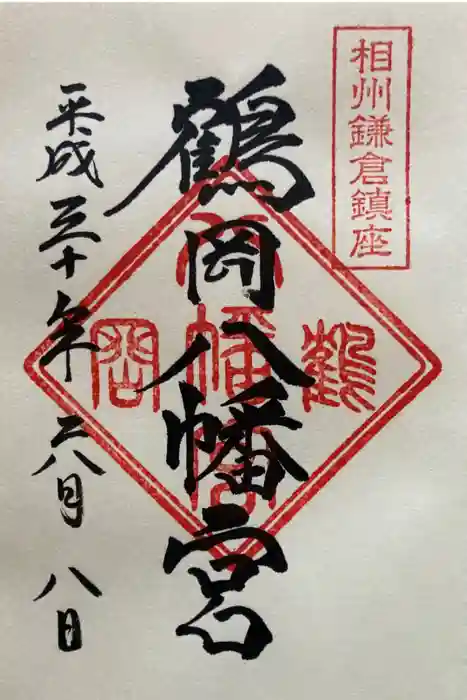 相州鎌倉鎮座
鶴岡八幡宮
鶴岡八幡宮
平成三十年六月八日